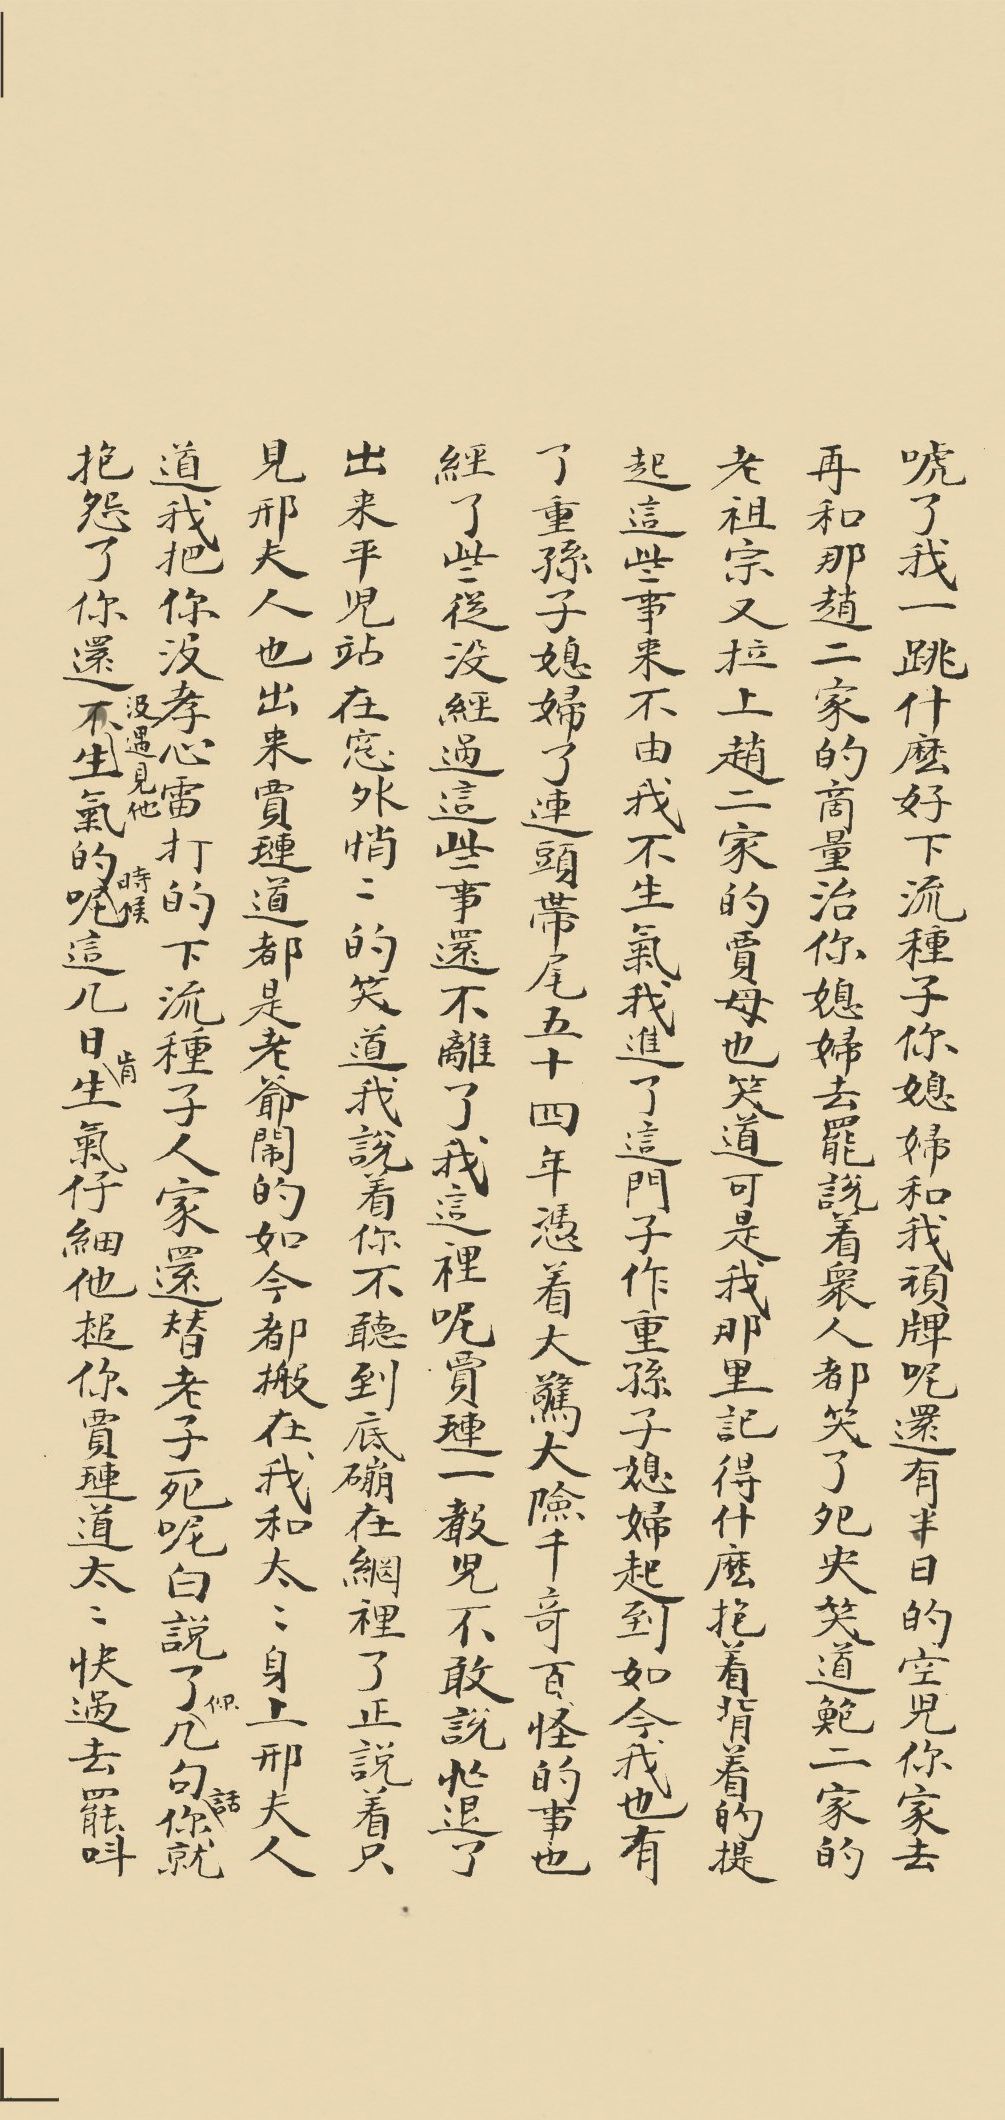 唬了我一跳什麽好下流種子你媳婦和我頑牌呢還有半日的空児你家去
再和那趙二家的商量治你媳婦去罷説着衆人都笑了夗央笑道鲍二家的
老祖宗又拉上趙二家的賈母也笑道可是我那里記得什麽抱着背着的提
起這些事来不由我不生氣我進了這門子作重孫子媳婦起到如今我也有
了重孫子媳婦了連頭帶尾五十四年憑着大驚大險千奇百怪的事也
經了些從没經過這些事還不離了我這裡呢賈璉一聲児不敢説忙退了
出来平児站在窓外悄〻的笑道我説着你不聽到底磞在網裡了正説着只
見邢夫人也出来賈璉道都是老爺鬧的如今都搬在我和太〻身上邢夫人
道我把你没孝心雷打的下流種子人家還替老子死呢白説了几句你就
仰
話
抱怨了你還不生氣的呢這几日生氣仔細他搥你賈璉道太〻快過去罷呌
没遇見他
時候
肯